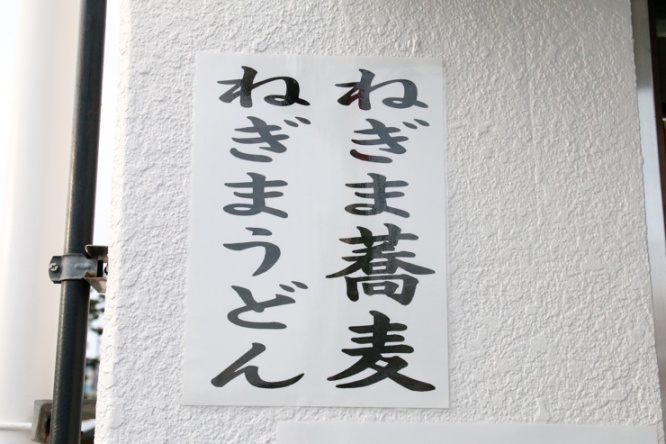 ねぎま蕎麦
ねぎまうどん